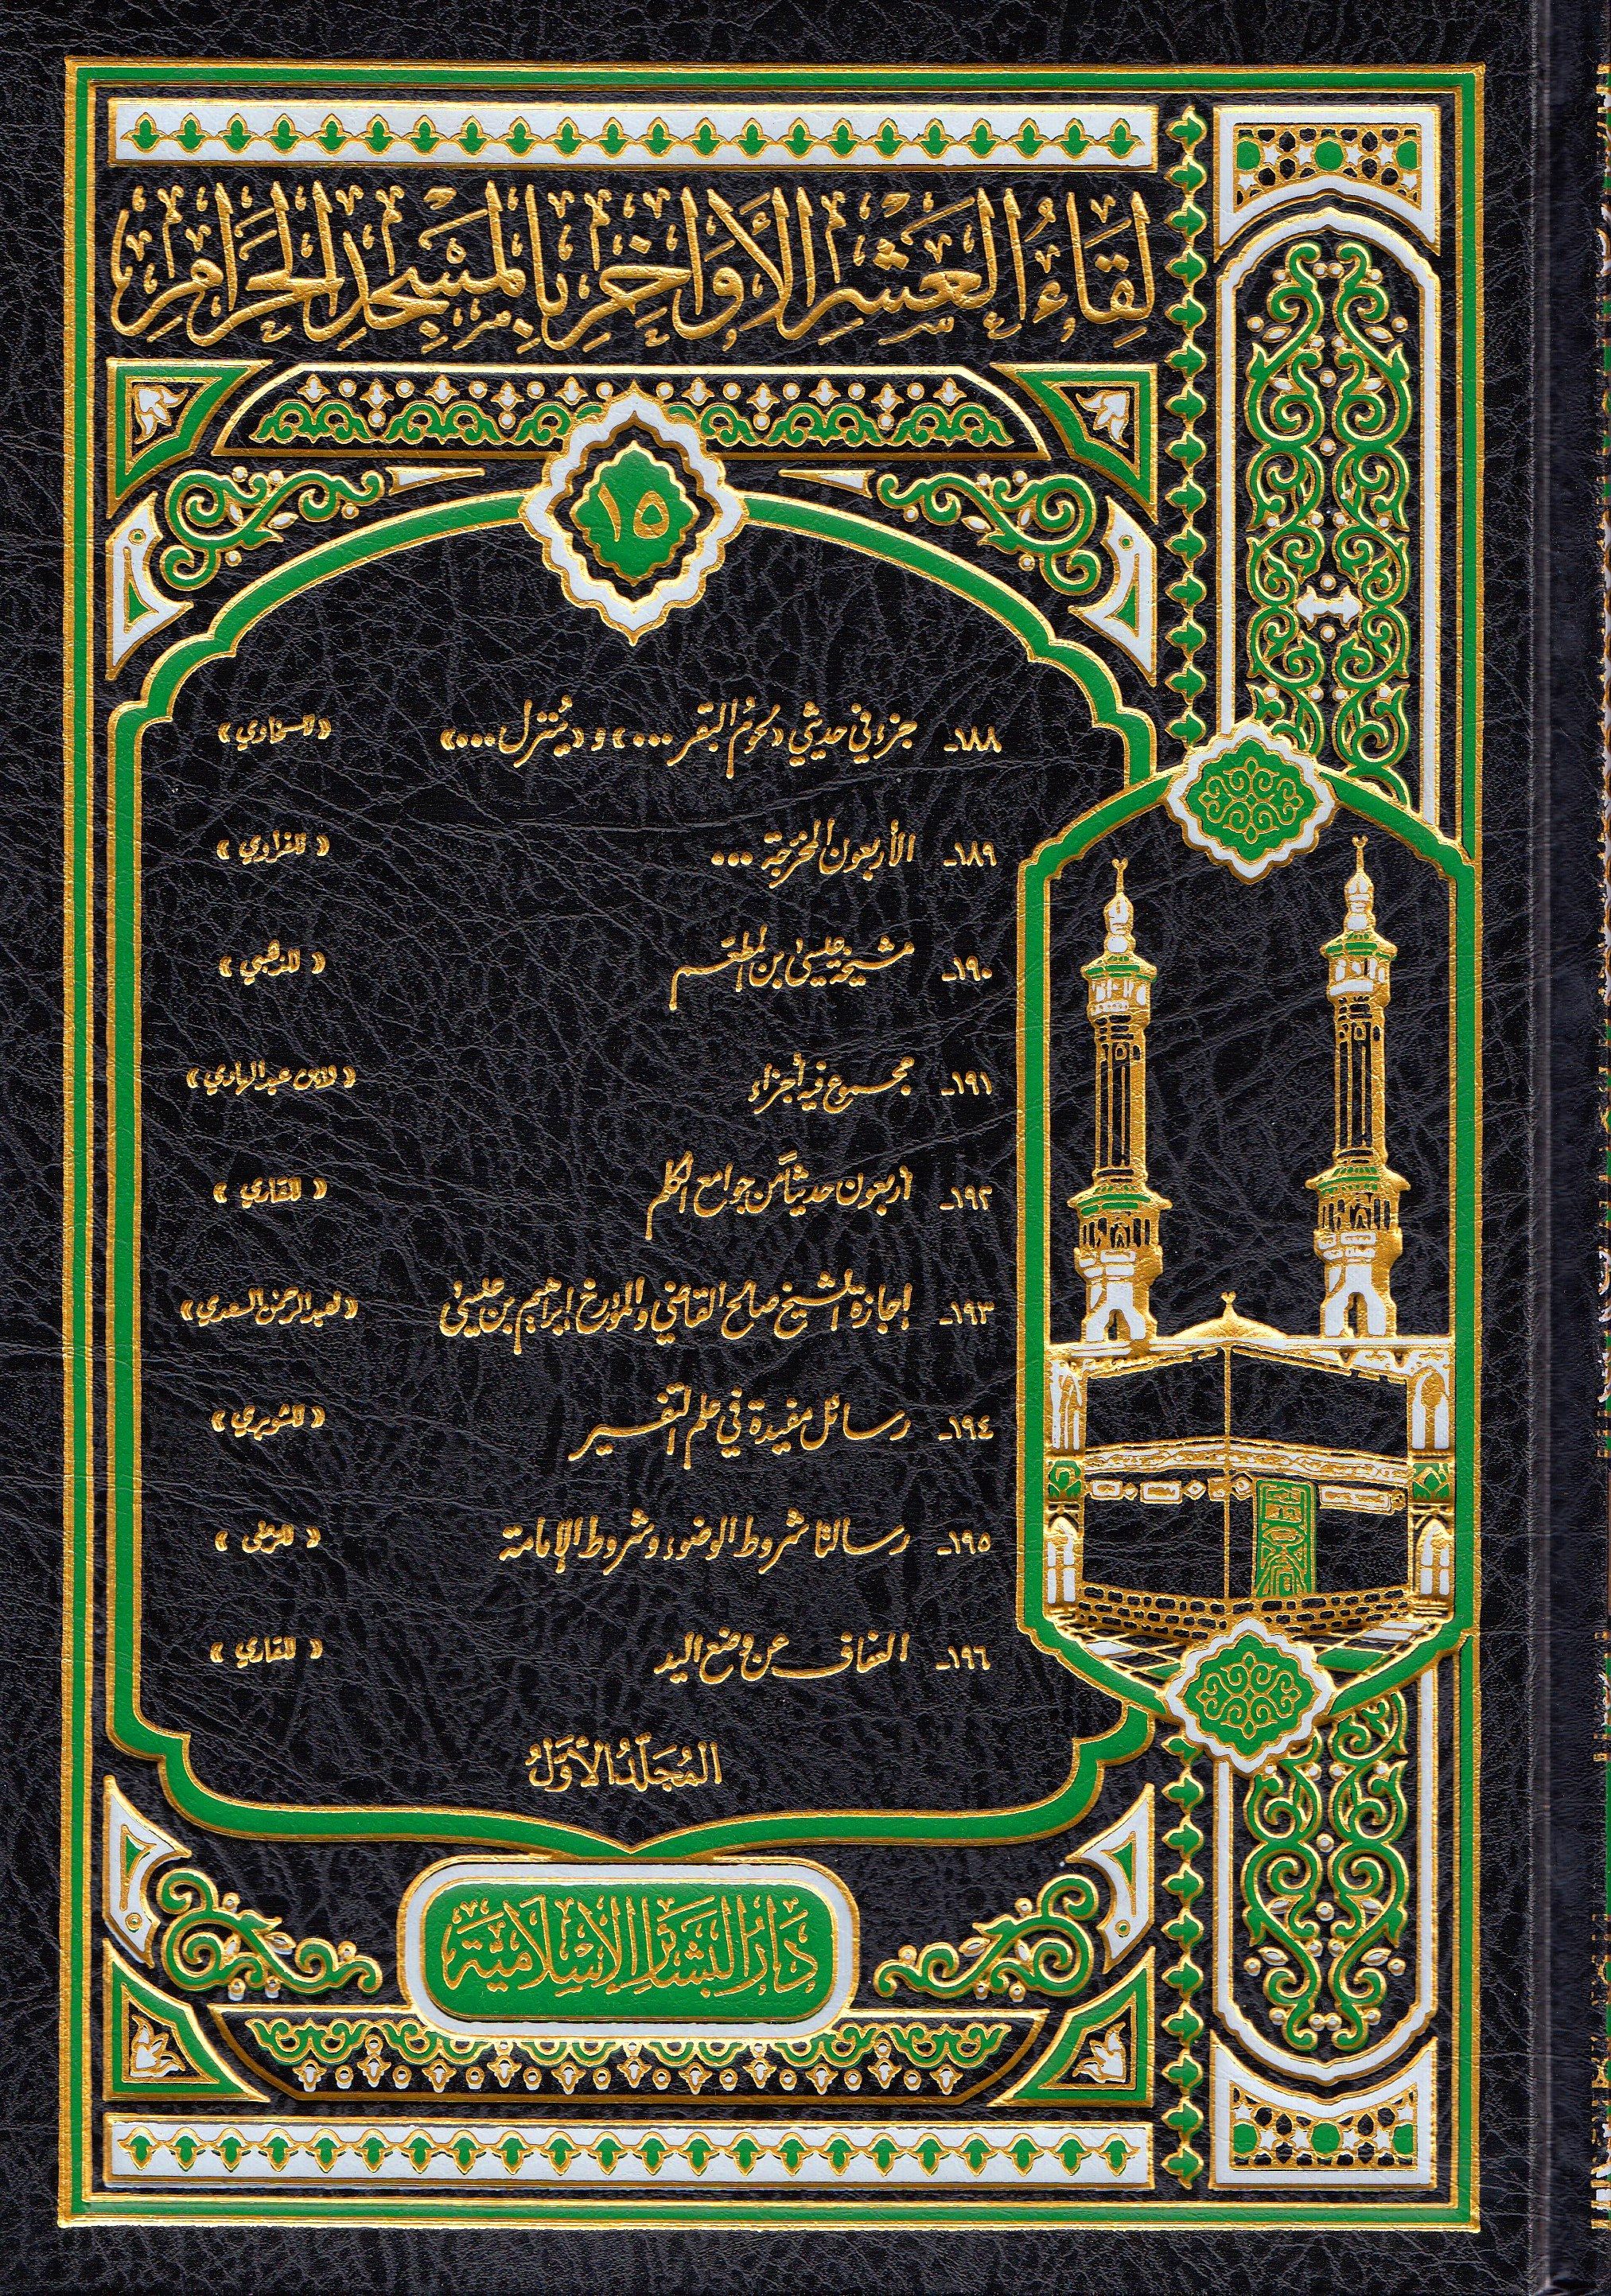 لِقَاءُ العَشْرِ الأَوَاخِرِ بِالمَسْجِدِ الحَرَامِ
١٥
١٨٨- جزء في حديثي «لحوم البقر ...» و«يُنتزل ...» «للسخاوي»
١٨٩- الأربعون المخرّجة ... «للفراوي»
١٩٠- مشيخة عيسى بن المطعّم «للذهبي»
١٩١- مجموع فيه أجزاء «لابن عبد الهادي»
١٩٢- أربعون حديثاً من جوامع الكلم «للقاري»
١٩٣- إجازة الشيخ صالح القاضي والمؤرخ إبراهيم بن عيسى «لعبد الرحمن السعدي»
١٩٤- رسائل مفيدة في علم التفسير «للشوبري»
١٩٥- رسالتا شروط الوضوء وشروط الإمامة «للرملي»
١٩٦- العفاف عن وضع اليد «للقاري»
المُجَلّدُ الأَوّلُ
دَارُ البَشَائِرِ الإِسْلَامِيَّة